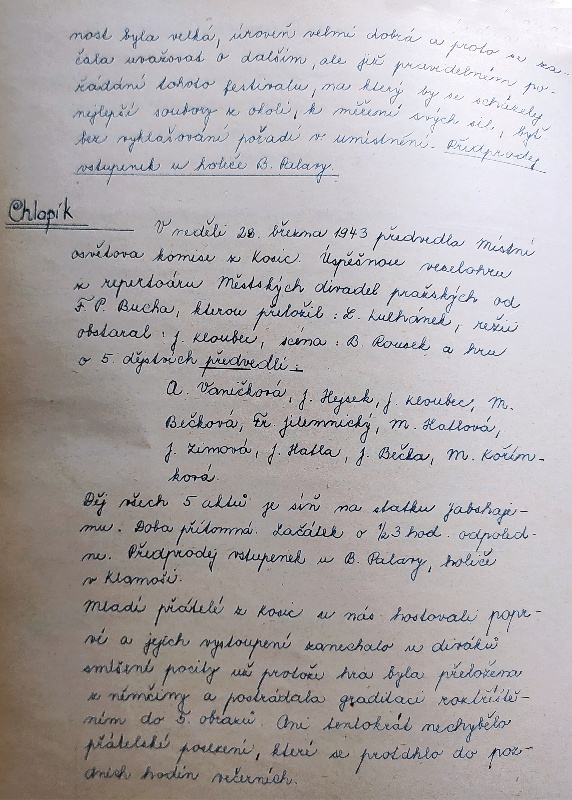 nost byla velká, úroveň velmi dobrá a proto se za-
čala uvažovat o dalším, ale již pravidelném po-
řádání tohoto festivalu, na který by se scházely
nejlepší soubory z okolí, k měření svých sil, byť
bez vyhlašování pořadí v umístnění. Předprodej
vstupenek u holiče B. Palavy.
Chlapík
V neděli 28. března 1943 předvedla Místní
osvětova komise z Kosic. Úspěšnou veselohru
z repertoáru Městských divadel pražských od
F. P. Bucha, kterou přeložil: L. Lulhánek, režii
obstaral: J. Kloubec, scéna: B. Rousek a hru
o 5. dějstvích předvedli:
A. Vaničková, J. Hysek, J. Kloubec, M.
Bečková, Fr. Jilemnický, M. Hatlová,
J. Zimová, J. Hatla, J. Bečka, M. Kořín-
ková.
Děj všech 5 aktů je síň na statku
mu. Doba přítomná. Začátek o 1/2 3 hod. odpoled-
ne. Předprodej vstupenek u B. Palavy, holiče
v Klamoši.
Mladí přátelé z Kosic u nás hostovali popr-
vé a jejich vystoupení zanechalo u diváků
smíšené pocity už protože hra byla přeložena
z němčiny a postrádala graditaci roztříště-
ním do 5. obrazů. Ani tentokrát nechybělo
přátelské posezení, které se protáhlo do poz-
dních hodin večerních.